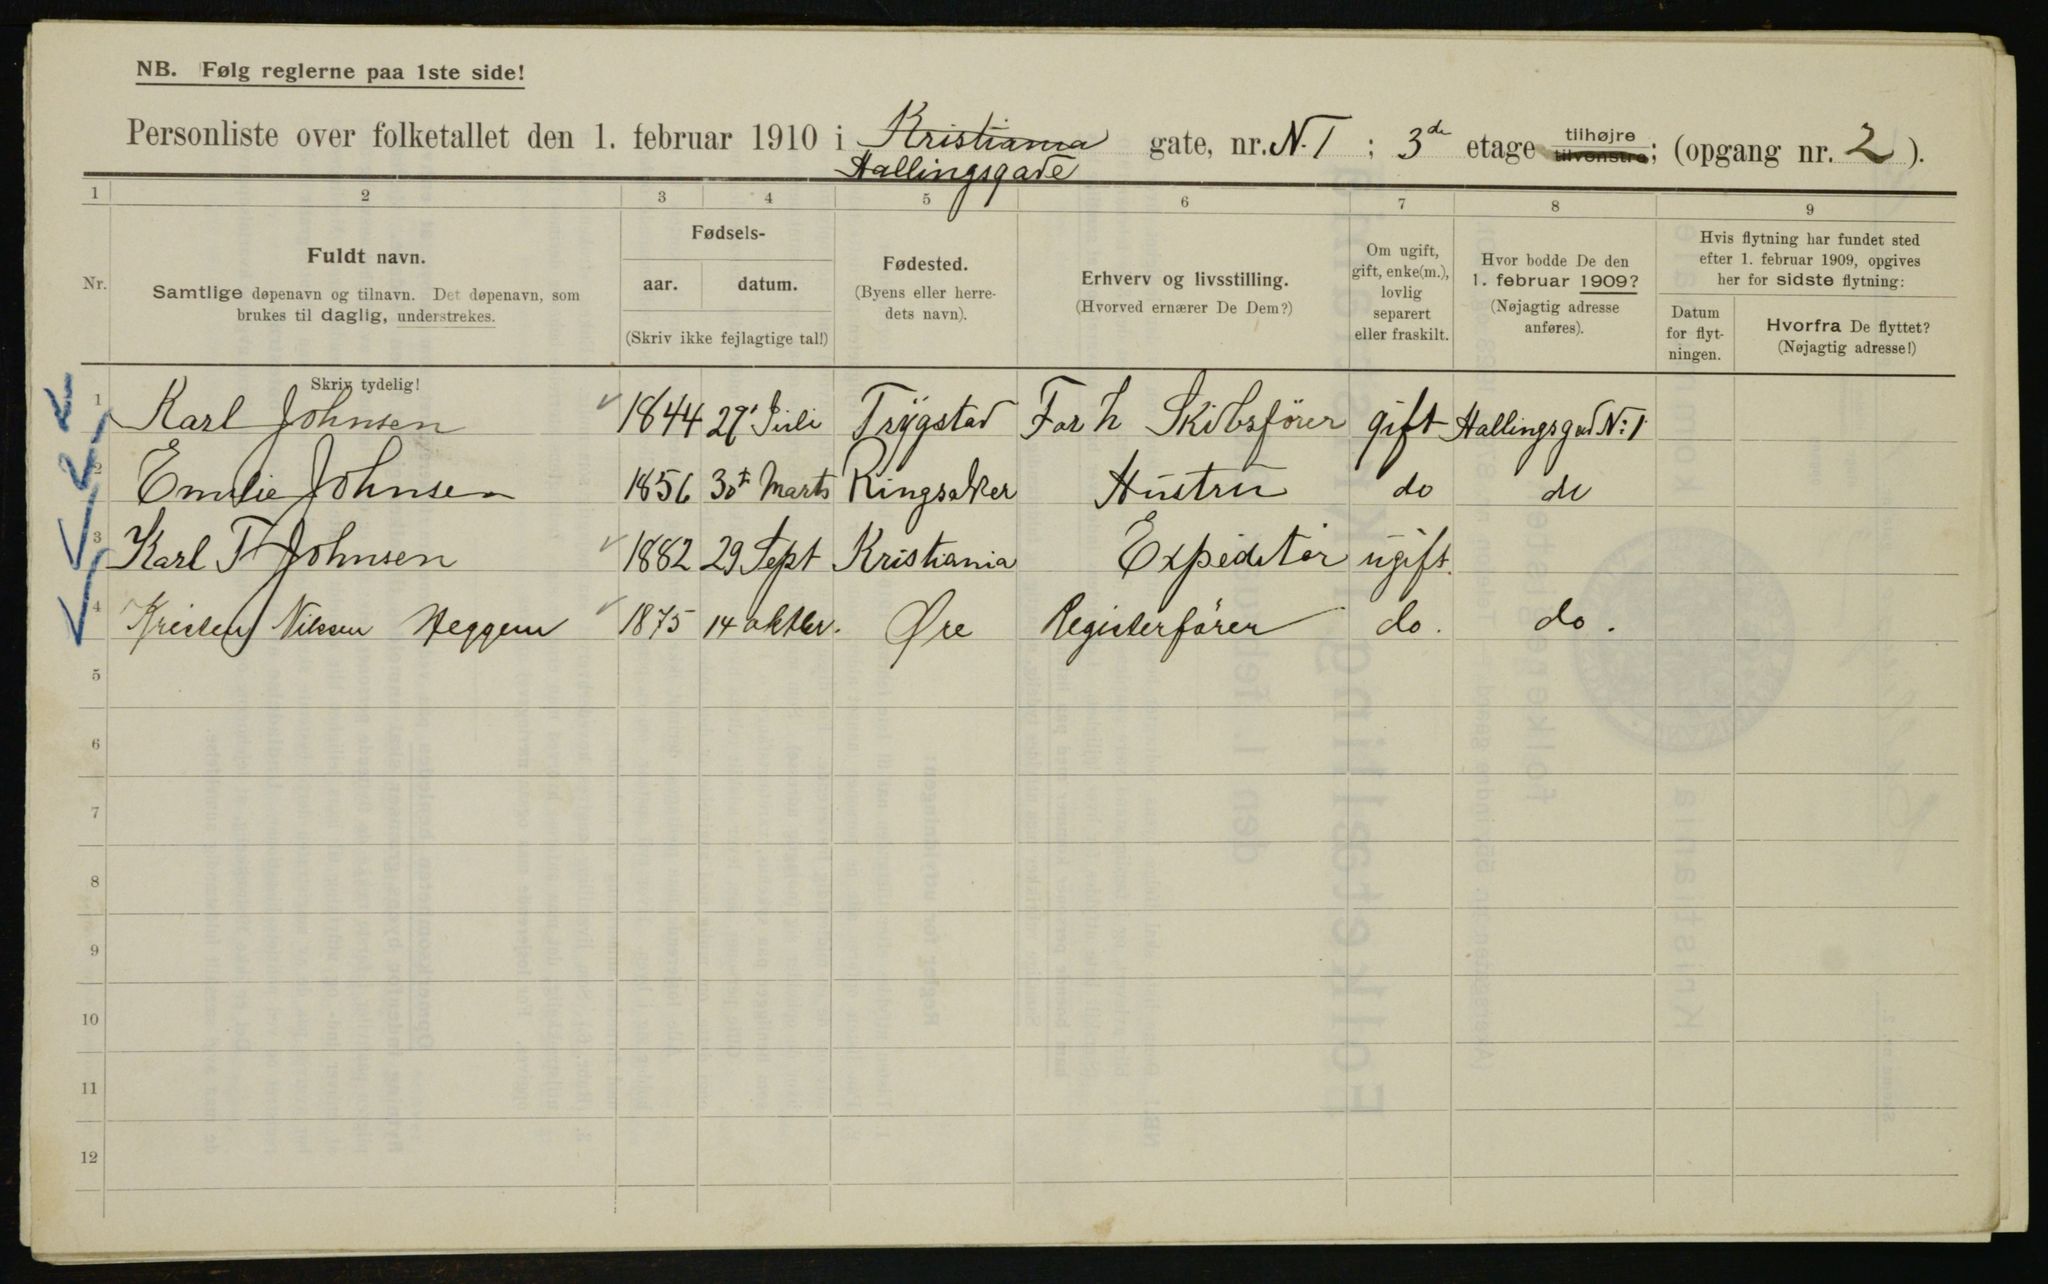 NB. Følg reglerne paa 1ste side!
Personliste over folketallet den 1. februar 1910 i Kristiania gate, nr. N. 1 ; 3de etage tilhøjre tilvenstre; (opgang nr. 2 ).
Hallingsgade
1 2 3 4 5 6 7 8 9
Nr.
Fuldt navn.
Samtlige døpenavn og tilnavn. Det døpenavn, som
brukes til daglig, understrekes.
Fødsels-
aar. datum.
(Skriv ikke fejlagtige tal!)
Fødested.
(Byens eller herre-
dets navn).
Erhverv og livsstilling.
(Hvorved ernærer De Dem?)
Om ugift,
gift, enke(m.),
lovlig
separert
eller fraskilt.
Hvor bodde De den
1. februar 1909?
(Nøjagtig adresse
anføres).
Hvis flytning har fundet sted
efter 1. februar 1909, opgives
her for sidste flytning:
Datum
for flyt-
ningen.
Hvorfra De flyttet?
(Nøjagtig adresse!)
Skriv tydelig!
1 Karl Johnsen 1844 Juli Trygstad Forh Skibsfører gift Hallingsgad No: 1
2 Emilie Johnsen 1856 30te Marts Ringsaker Hustru do do
3 Karl Johnsen 1882 29 Sept Kristiania Expeditør ugift.
4 Kristen Nilssen Heggem 1875 14 oktbr. Øre Registerfører do. do.
5
6
7
8
9
10
11
12